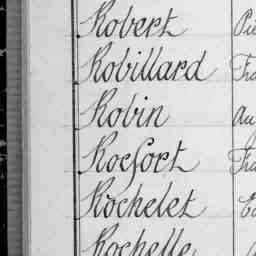 Robert Pie
Robillard Fra
Robin Au
Rocfort Fra
Rochelet
Rochelle